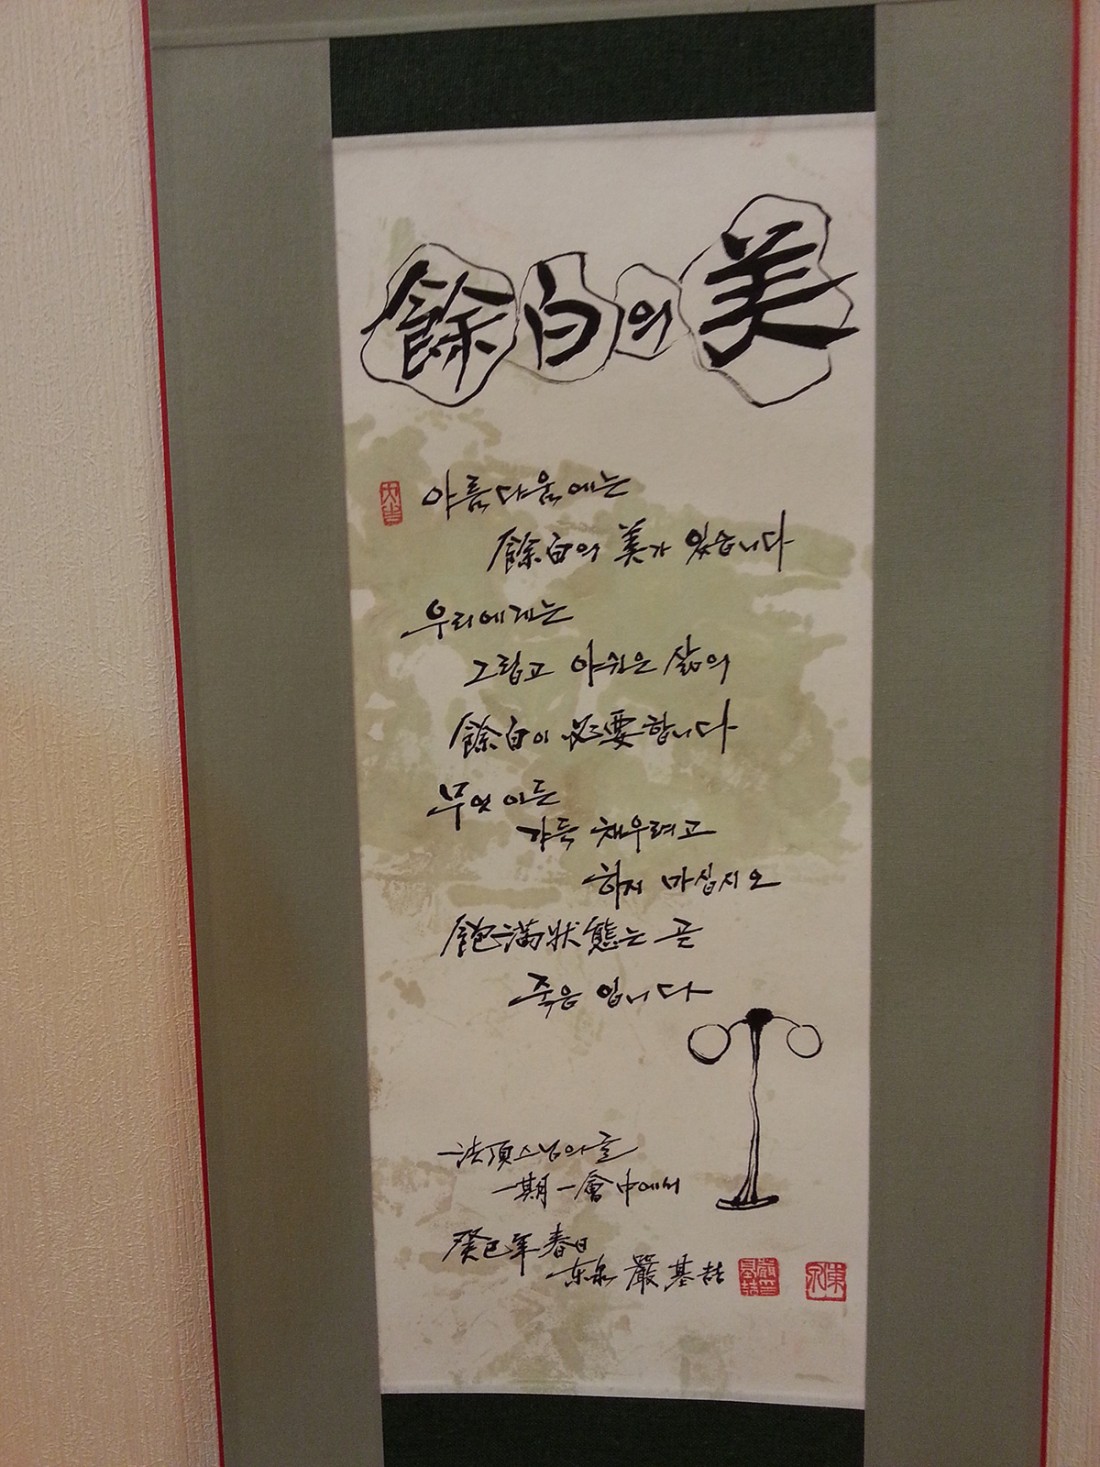 餘白의 美
아름다움에는
餘白의 美가 있습니다
우리에게는
그립고 아쉬운 삶의
餘白이 必要합니다
무엇이든
가득 채우려고
하지 마십시오
飽滿狀態는 곧
죽음입니다
法頂스님의 글
一期一會中에서
癸巳年 春日
东泉 嚴基喆